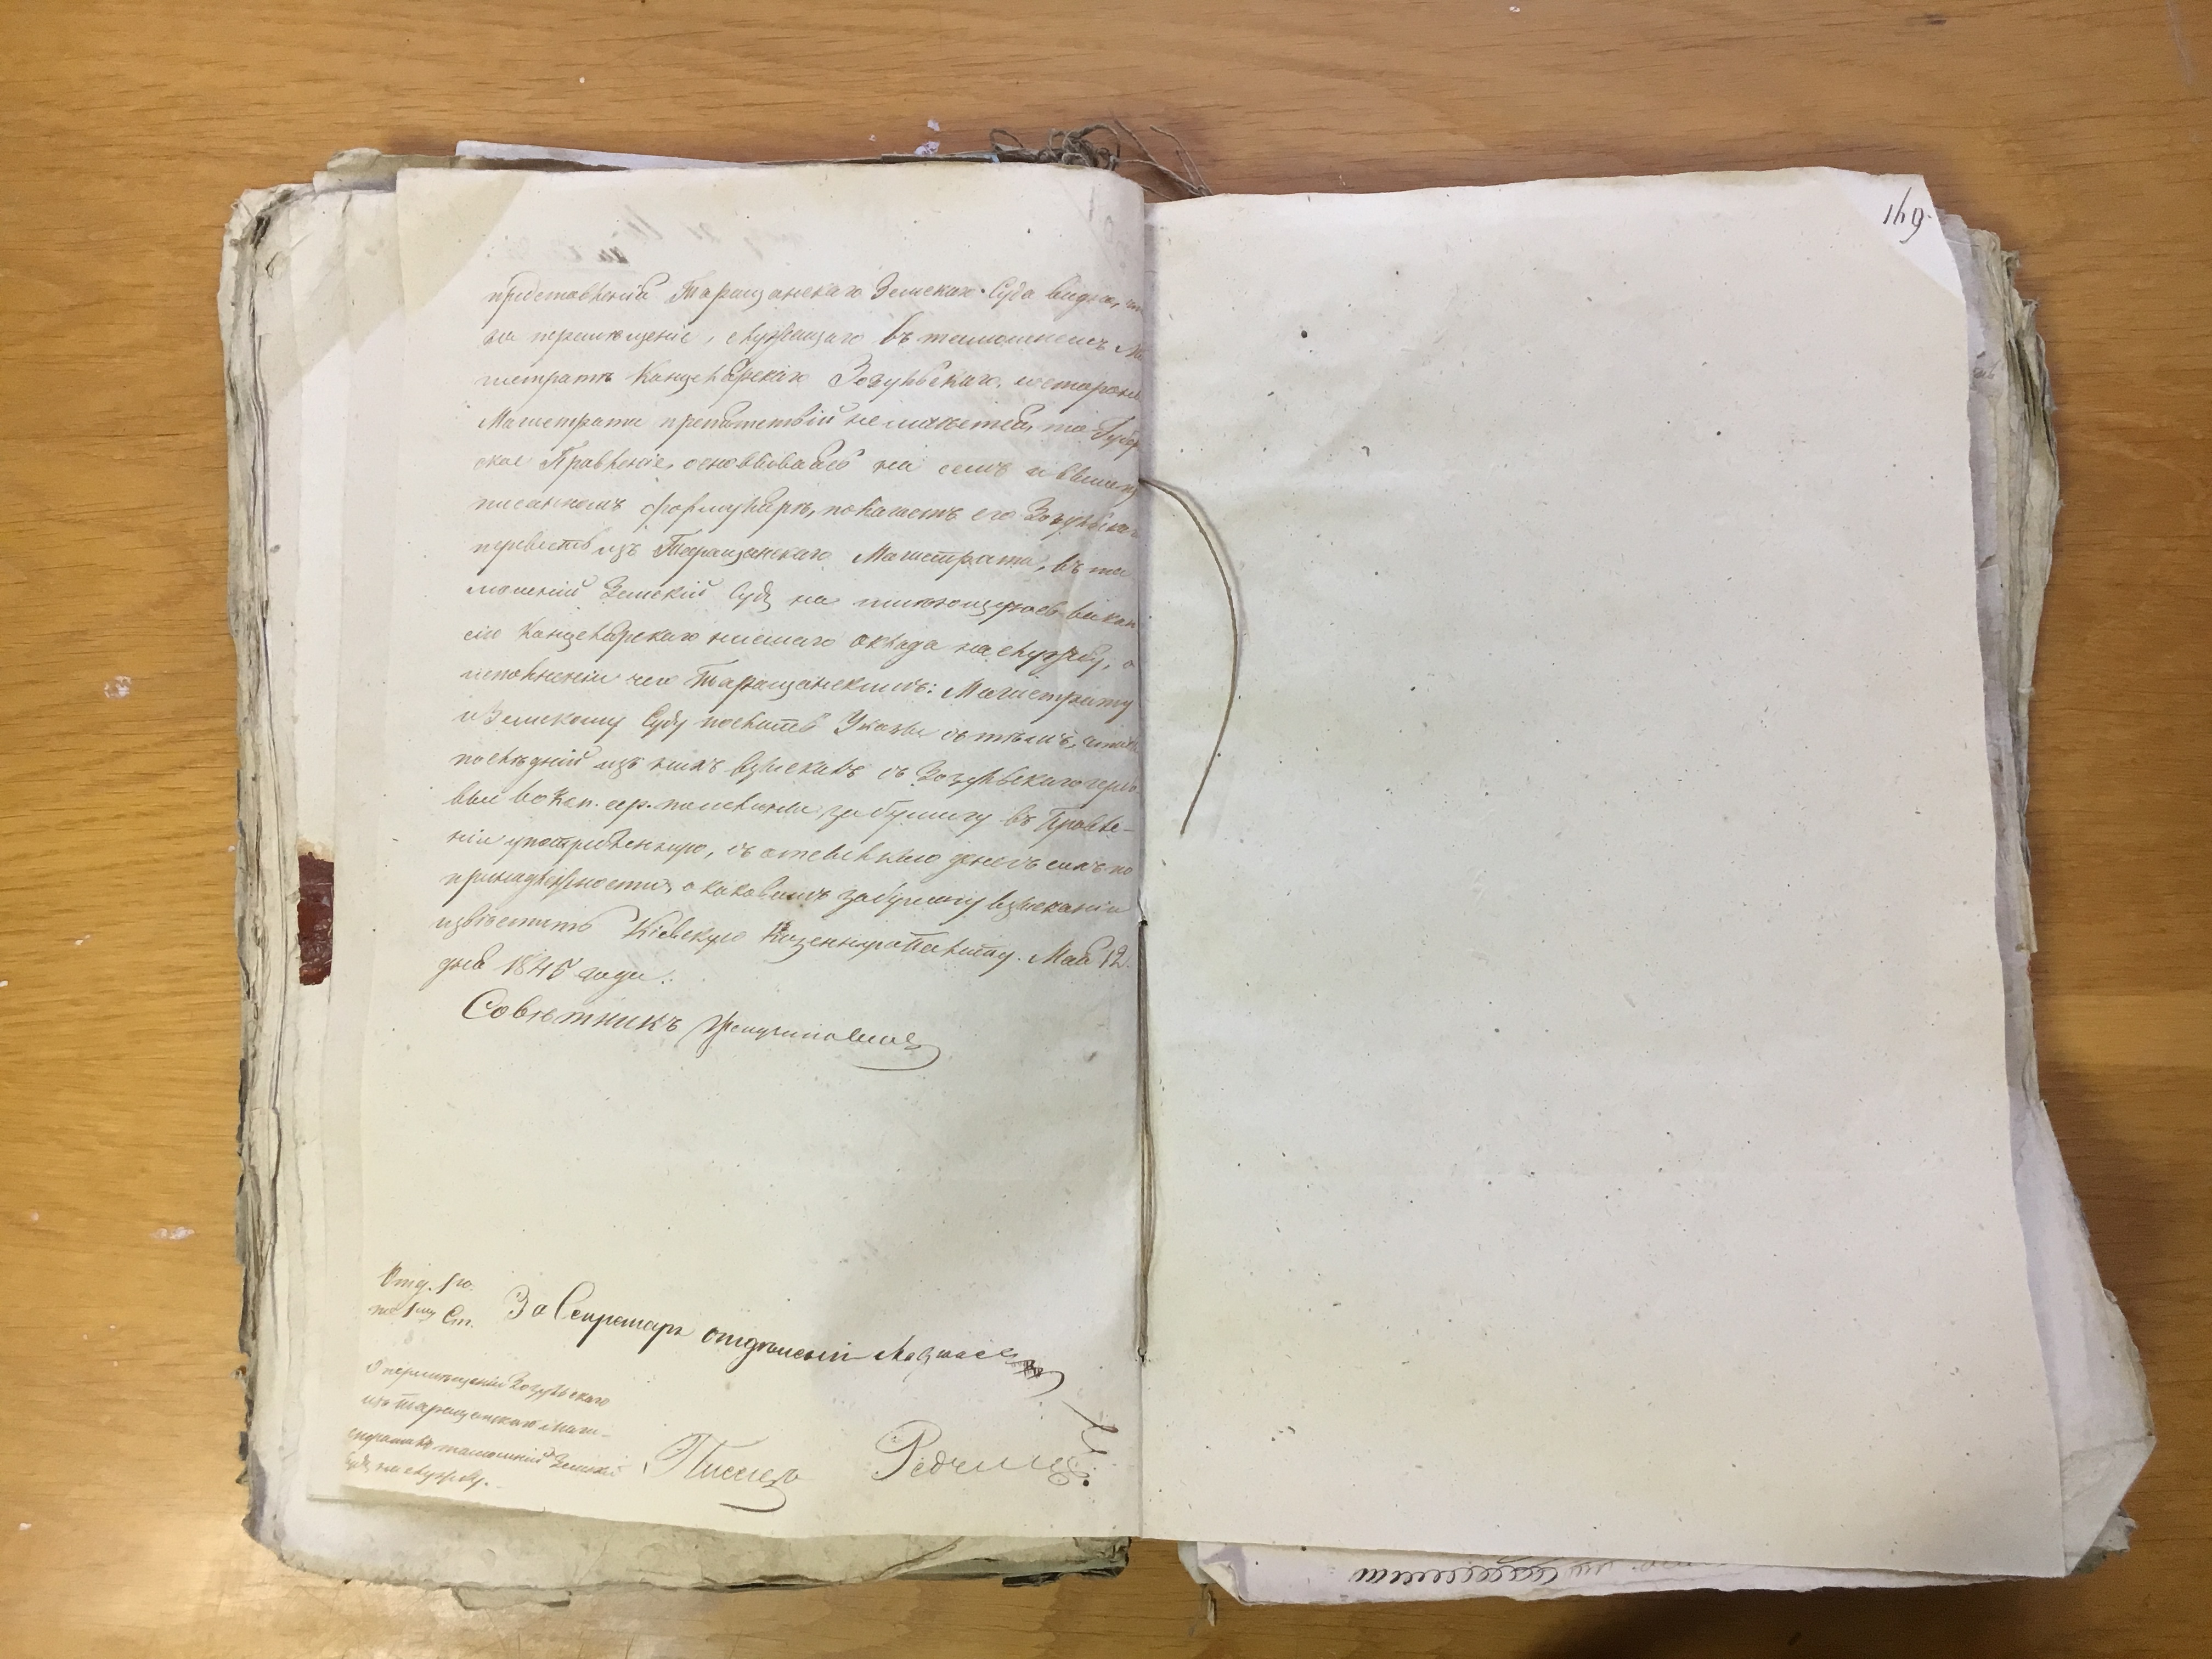 169.
представленія Таращанскаго Земскаго Суда видно, что
на перемѣщеніе, служащаго въ тамошнемъ Ма
гистратѣ Канцелярскаго Зозулѣвскаго, со стороны
Магистрата препятствій не имѣется, то Губерн
ское Правленіе, основываясь на семъ и вышепро
писанномъ формулярѣ, полагаетъ его Зозулѣвскаго
перевесть изъ Таращанскаго Магистрата, въ та
мошній Земскій Судъ на имѣющуюся вакан
сію Канцелярскаго низшаго оклада на службу, о
исполненіи чего Таращанскимъ: Магистрату
и Земскому Суду послать Указы съ тѣмъ, чтобы
послѣдній изъ нихъ взыскавъ съ Зозулѣвскаго гербо
вые коп. сер. пошлины за бумагу въ Правле-
ніи употребленную, съ отсылкою денегъ сихъ по
принадлежности, о каковомъ за бумагу взысканіи
извѣстить Кіевскую Казенную Палату. Мая 12
дня 1845 года.
Совѣтникъ
Отд. 1го
по 1му Ст.
За Секретаря
О перемѣщеніи Зозулѣвскаго
изъ Таращанскаго Маги-
страта въ тамошній Земскій
Судъ на службу.